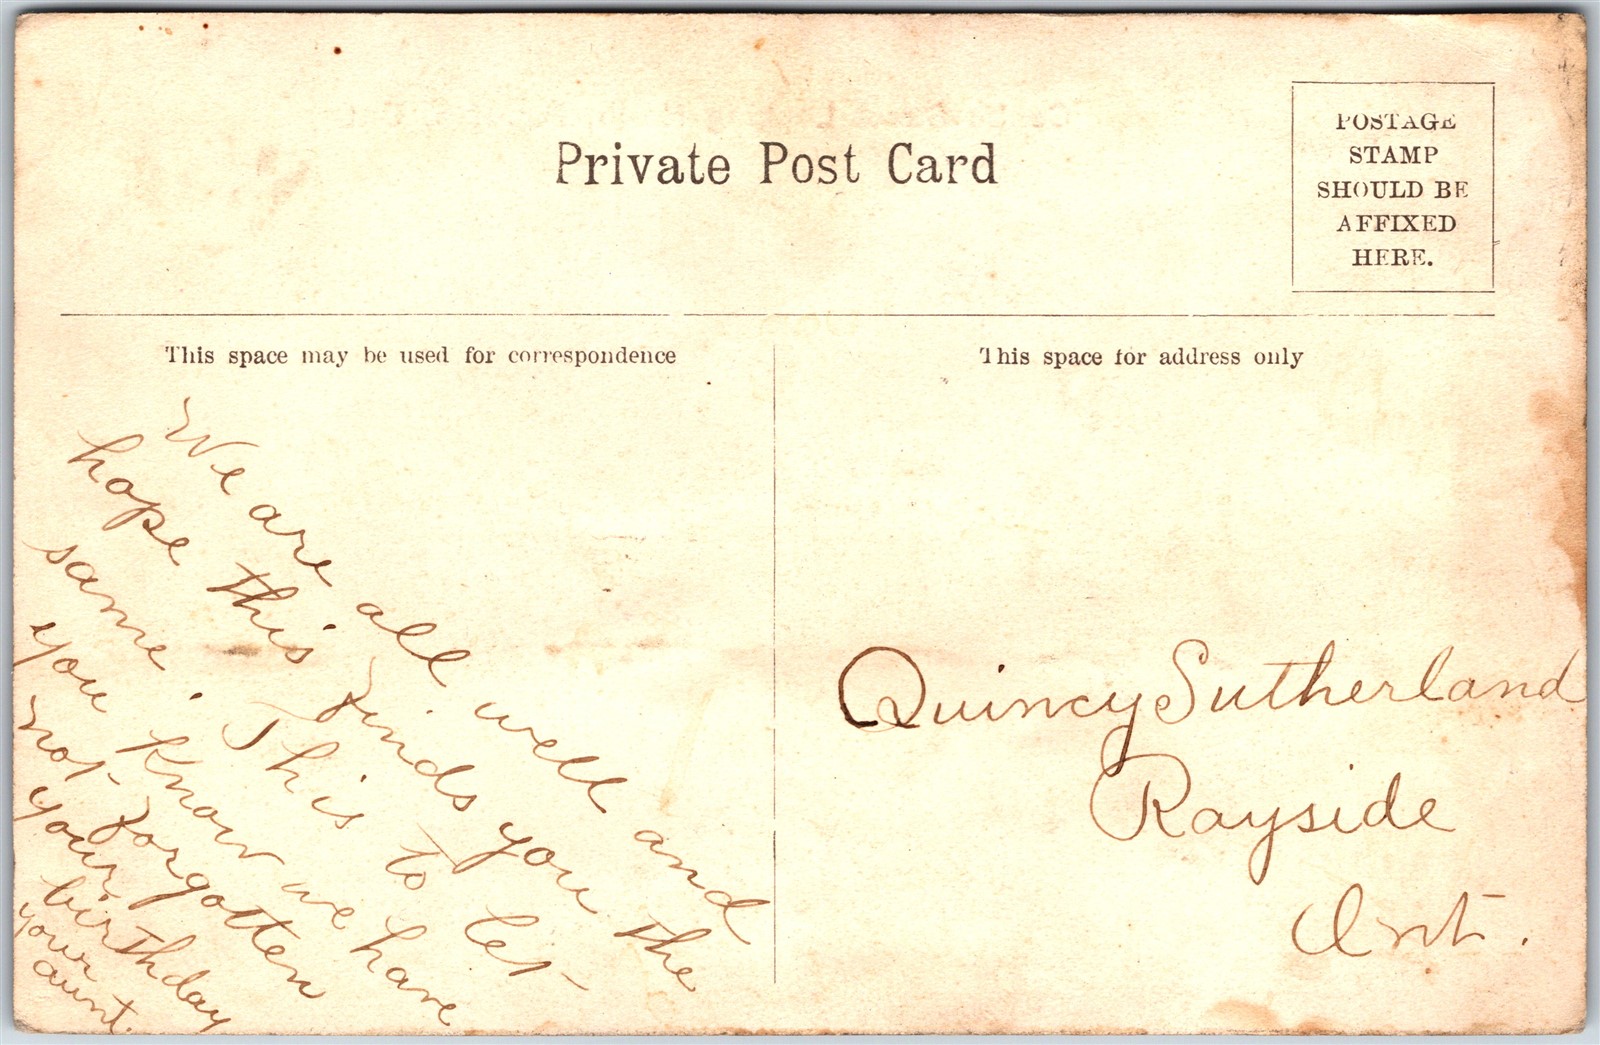 Private Post Card
POSTAGE
STAMP
SHOULD BE
AFFIXED
HERE.
This space may be used for correspondence
This space for address only
We are all well and
hope this finds you the
same. This to let
you know we have
not forgotten
your birthday
your
aunt.
Quincy Sutherland
Rayside
Ont.